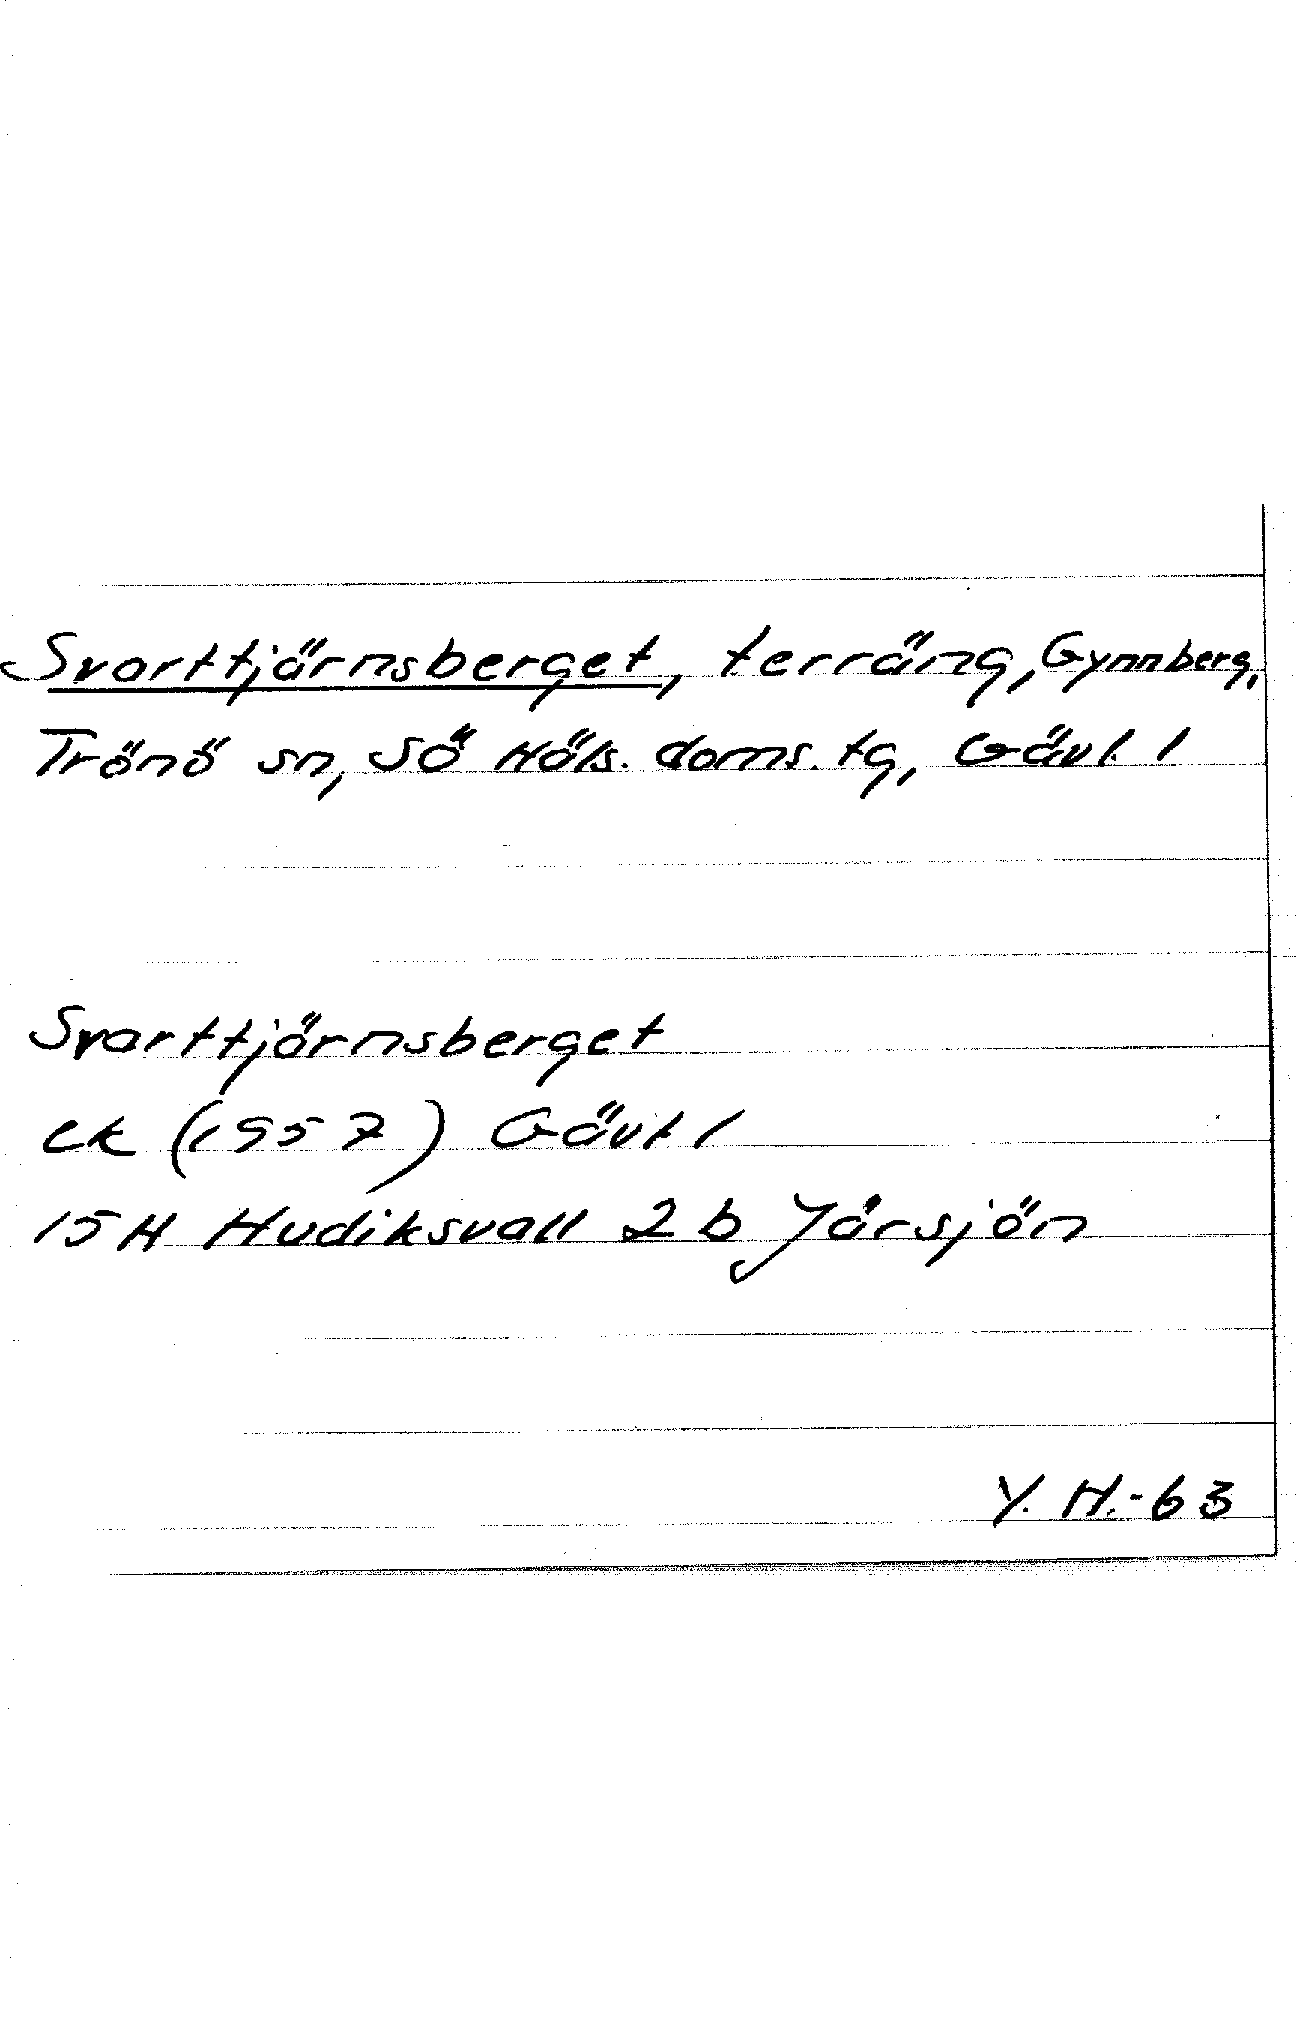 Svarttjärnsberget, terräng, Gynnberg,
Trönö sn, Sö Häls. doms. tg, Gävl. l
Svarttjärnsberget
ek (1957) Gävl l
15 H Hudiksvall 2 b Jårsjön
Y. H.-63